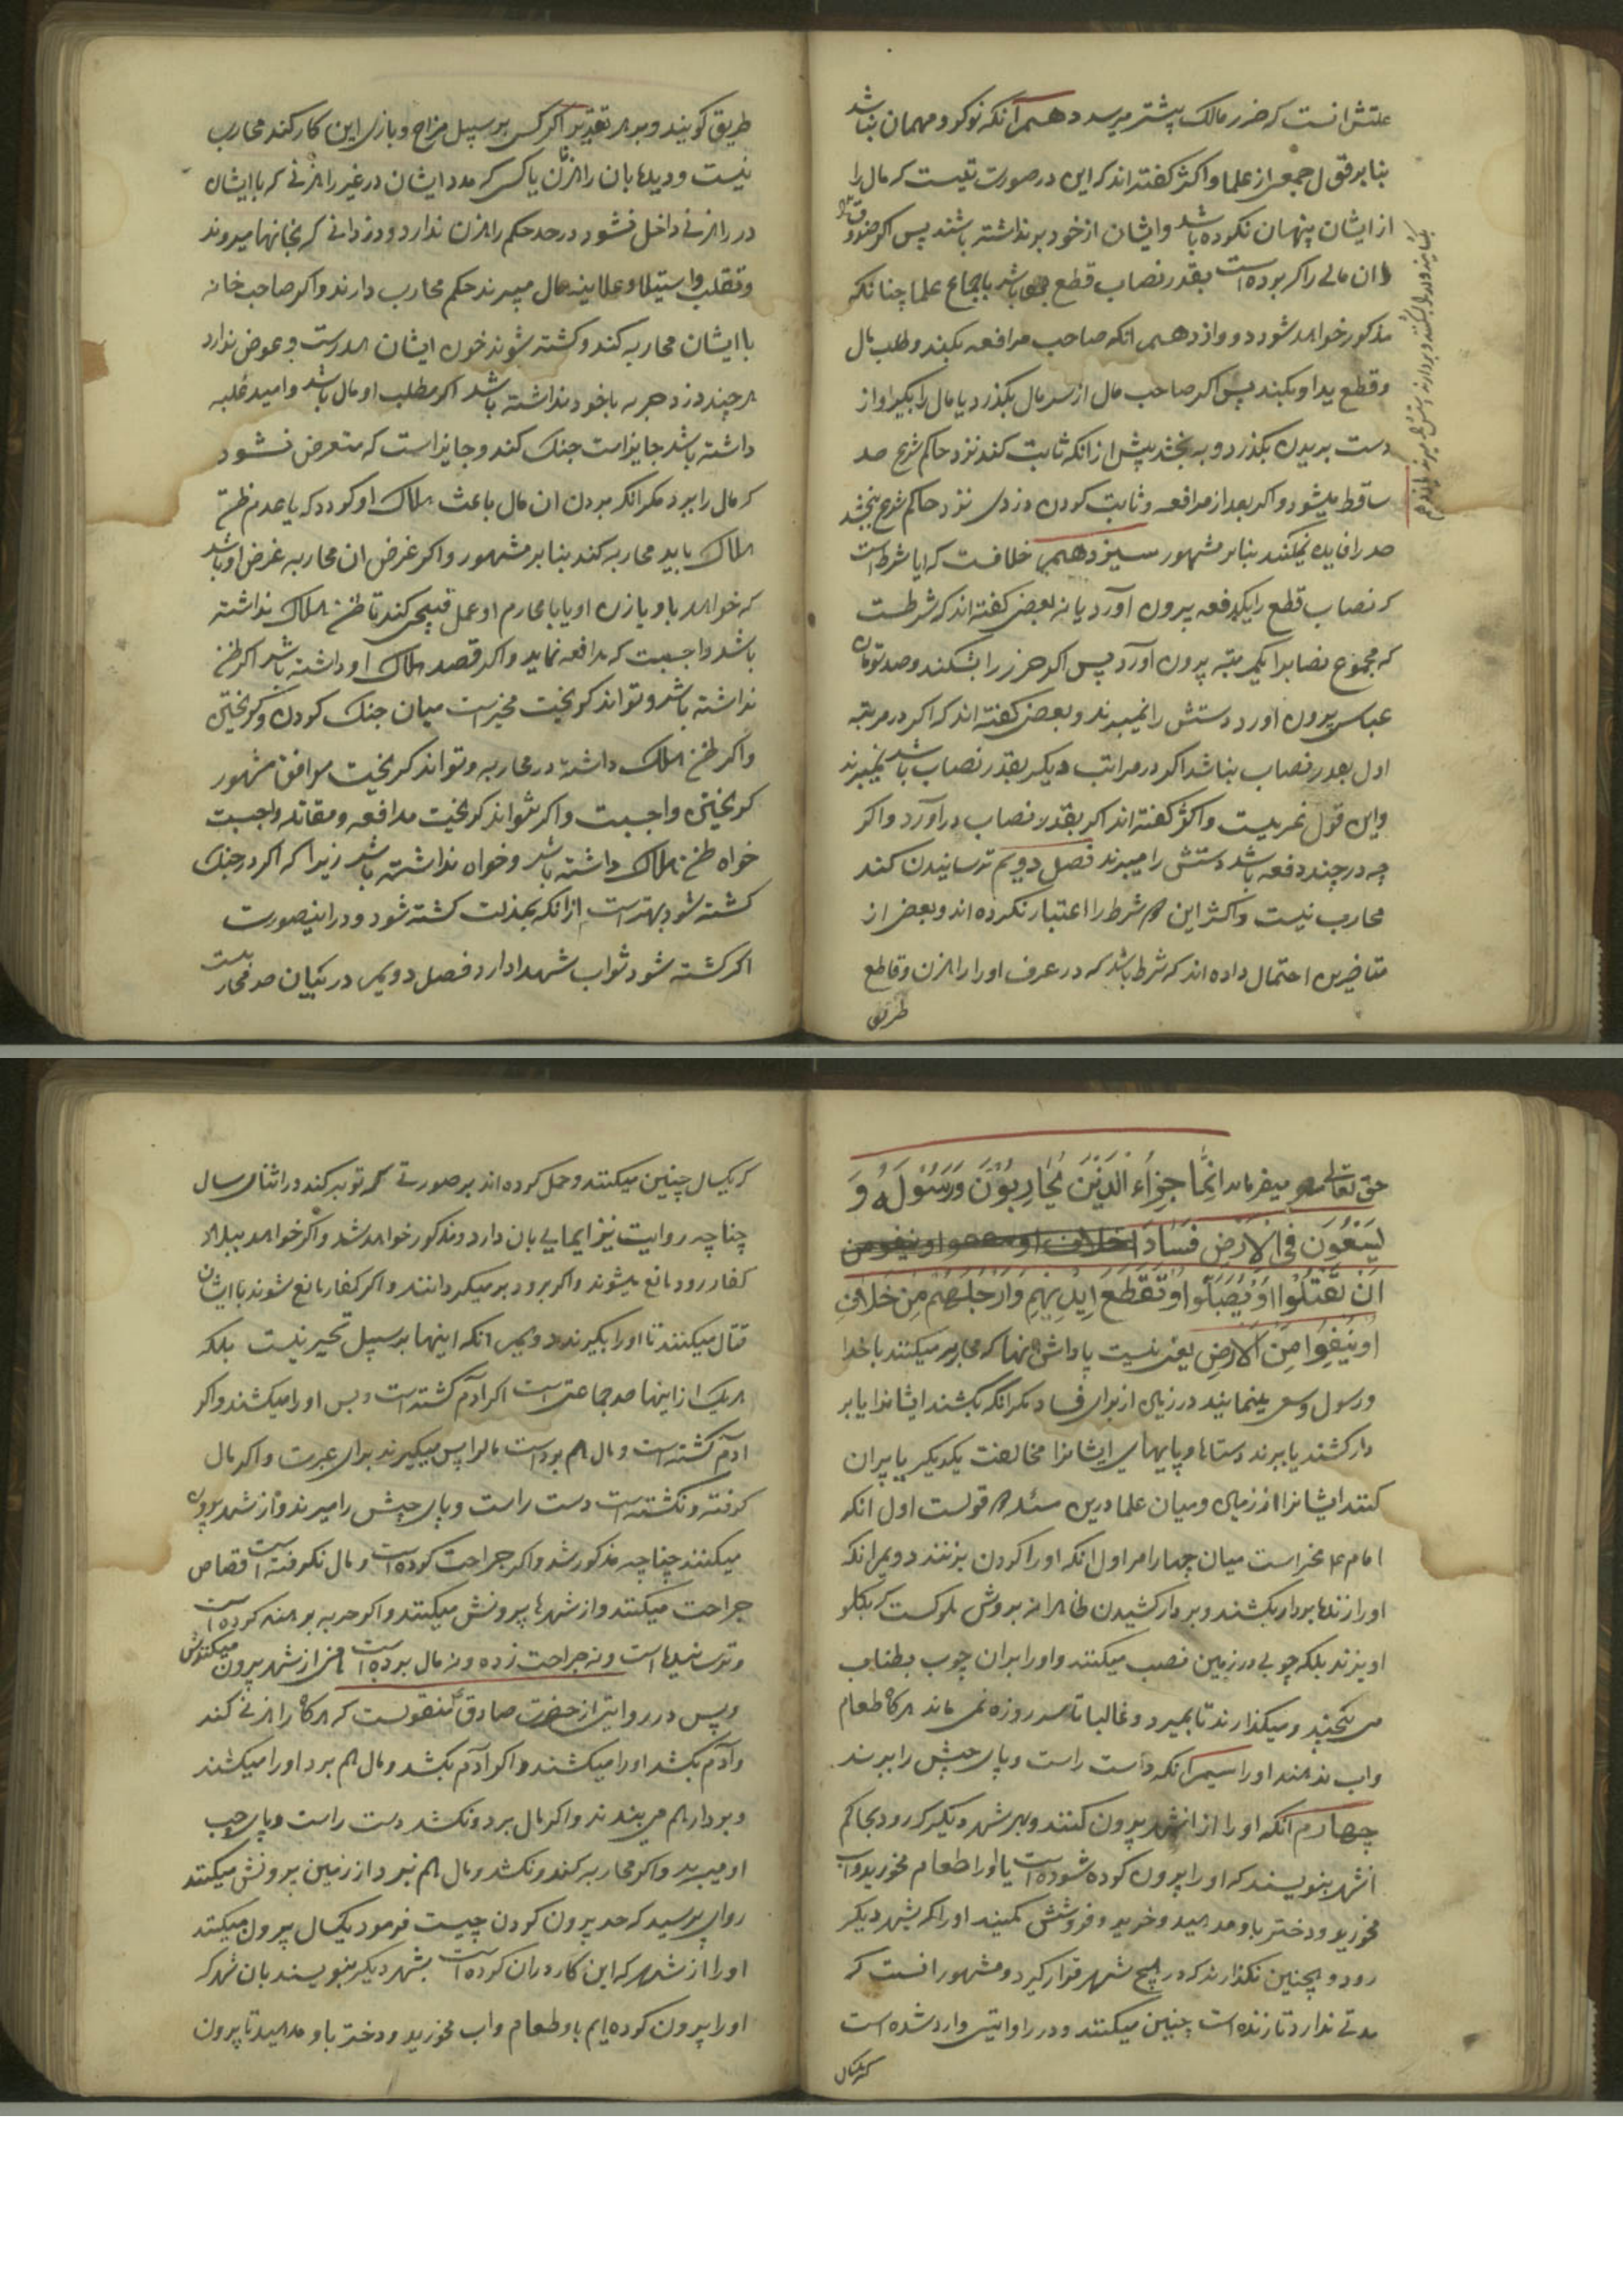 علتش انست که ضرر مالک بیشتر میرسد دهم آنکه نوکر و مهمان نباشد
بنا بر قول جمعی از علما و اکثر گفته‌اند که این در صورتیست که مال را
از ایشان پنهان نکرده باشد و ایشان از خود برنداشته باشند پس اکر صندوق
ان مالی را که بوده است بقدر نصاب قطع باشد باجماع علما چنانکه
مذکور خواهد شود دوازدهم انکه صاحب مرافعه بکند و طلب مال
و قطع ید او بکند پس اکر صاحب مال از سر مال بکذرد یا مال را بکیرد و از
دست بریدن بکذرد و به بخشد پیش از انکه ثابت کند نزد حاکم شرع حد
ساقط میشود و اکر بعد از مرافعه و ثابت کردن دزدی نزد حاکم شرع بخشد
حد را فایده نمیکند بنابر مشهور سیزدهم خلافست که ایا شرط است
که نصاب قطع را یکدفعه بیرون آورد یا نه بعضی گفته‌اند که شرطست
که مجموع نصابرا یکمرتبه بیرون آورد پس اکر حرز را بشکند و صد تومان
عباسی بیرون آورد دستش را نمیبرند و بعضی کفته‌اند که اکر در مرتبه
اول بقدر نصاب نباشد اکر در مراتب دیکر بقدر نصاب باشد نمیبرند
و این قول غریبست و اکثر کفته‌اند اکر بقدر نصاب درآورد و اکر
چه در چند دفعه باشد دستش را میبرند فصل دویم ترسانیدن کند
محارب نیست و اکثر این شرط را اعتبار نکرده‌اند و بعضی از
متاخرین احتمال داده‌اند که شرط باشد که در عرف او را راهزن و قاطع
طریق
طریق کویند و بر هر تقدیر اکر کسی بر سبیل مزاح و بازی این کار کند محارب
نیست و دیده‌بان راهزنان یا کسی که مدد ایشان در غیر راهزنی که با ایشان
در راهزنی داخل نشود در حد حکم راهزن ندارد و دزدانی که بخانها میروند
و بتغلب و استیلا و علانیه مال میبرند حکم محارب دارند و اکر صاحب خانه
با ایشان محاربه کند و کشته شوند خون ایشان هدرست و عوض ندارد
هر چند دزد حربه با خود نداشته باشد اکر مطلب او مال باشد و امید غلبه
داشته باشد جایز است جنک کند و جایز است که متعرض نشود
که مال را ببرد مکر انکه بردن ان مال باعث هلاک او کردد که با عدم ظن
هلاک باید محاربه کند بنابر مشهور و اکر غرض ان محاربه عرض او باشد
که خواهد با او یا زن او یا با محارم او عمل قبیحی کند تا ظن هلاک نداشته
باشد واجبست که مدافعه نماید و اکر قصد هلاک او داشته باشد اکر ظن
نداشته باشد و تواند کریخت مخیر است میان جنک کردن و کریختن
و اکر ظن هلاک داشته در محاربه و تواند کریخت موافق مشهور
کریختن واجبست و اکر نتواند کریخت مدافعه و مقاتله واجبست
خواه ظن هلاک داشته باشد و خواه نداشته باشد زیرا که اکر در جنک
کشته شود بهتر است از انکه بمذلت کشته شود و در اینصورت
اکر کشته شود ثواب شهدا دارد فصل دویم در بیان حد محاربست
حق تعالی میفرماید انما جزاء الذین یحاربون ورسوله و
یسعون فی الارض فسادا
ان یقتلوا او یصلبوا او تقطع ایدیهم وارجلهم من خلاف
او ینفوا من الارض یعنی نیست پاداش آنها که محاربه میکنند با خدا
و رسول و سعی مینمایند در زمین از برای فساد مکر انکه بکشند ایشانرا یا بر
دار کشند یا ببرند دستها و پایهای ایشانرا مخالفت یکدیکر یا بیران
کنند ایشانرا از زمین و میان علما درین مسئله قولست اول انکه
امام ع مخیر است میان چهار امر اول انکه او را کردن بزنند دویم انکه
او را زنده بردار بکشند و بردار کشیدن ظاهرا نه بروش ملوکست که بکلو
اویزند بلکه چوبی در زمین نصب میکنند و او را بران چوب بطناب
می پیچند و میکذارند تا بمیرد و غالبا تا سه روز زنده نمی ماند هر کاه طعام
و اب ندهند او را سیم آنکه دست راست و پای چپش را ببرند
چهارم آنکه او را از انشهر بیرون کنند و بهر شهر دیکر که رود بحاکم
انشهر بنویسند که او را بیرون کرده شده است با او طعام مخورید و اب
مخورید و دختر باو مدهید و خرید و فروش مکنید او را که بشهر دیکر
رود و همچنین نکذارند که در هیچ شهر قرار کیرد و مشهور انست که
مدتی ندارد تا زنده است چنین میکنند و در روایتی وارد شده است
که یکسال
که یکسال چنین میکنند و حمل کرده‌اند بر صورتی که توبه کند در اثنای سال
چنانچه روایت نیز ایمایی بان دارد و مذکور خواهد شد و اکر خواهد ببلاد
کفار رود مانع میشوند و اکر برود برمیکردانند و اکر کفار مانع شوند با ایشان
قتال میکنند تا او را بکیرند دویم انکه اینها بر سبیل تخییر نیست بلکه
هر یک از اینها حد جماعتی است اکر آدم کشته است و بس او را میکشند و اکر
ادم کشته است و مال هم برده است مالرا پس میکیرند برای عبرت و اکر مال
کرفته و نکشته است دست راست و پای چپش را میبرند و از شهر بیرون
میکنند چنانچه مذکور شد و اکر جراحت کرده است و مال نکرفته است قصاص
جراحت میکنند و از شهرها بیرونش میکنند و اکر حربه برهنه کرده است
و ترسانیده است و نه جراحت زده و نه مال برده است همین از شهر بیرون میکنندش
و پس در روایتی از حضرت صادق ع منقولست که هرکاه راهزنی کند
و آدم بکشد او را میکشند و اکر آدم بکشد و مال هم برد او را میکشند
و بردار هم می بندند و اکر مال برد و نکشد دست راست و پای چپ
او میبرند و اکر محاربه کند و نکشد و مال هم نبرد از زمین بیرونش میکنند
راوی پرسید که حد بیرون کردن چیست فرمود یکسال بیرون میکنند
او را از شهر که این کار دران کرده است بشهر دیکر بنویسند بان شهر که
او را بیرون کرده‌ایم باو طعام و اب مخورید و دختر باو مدهید تا بیرون